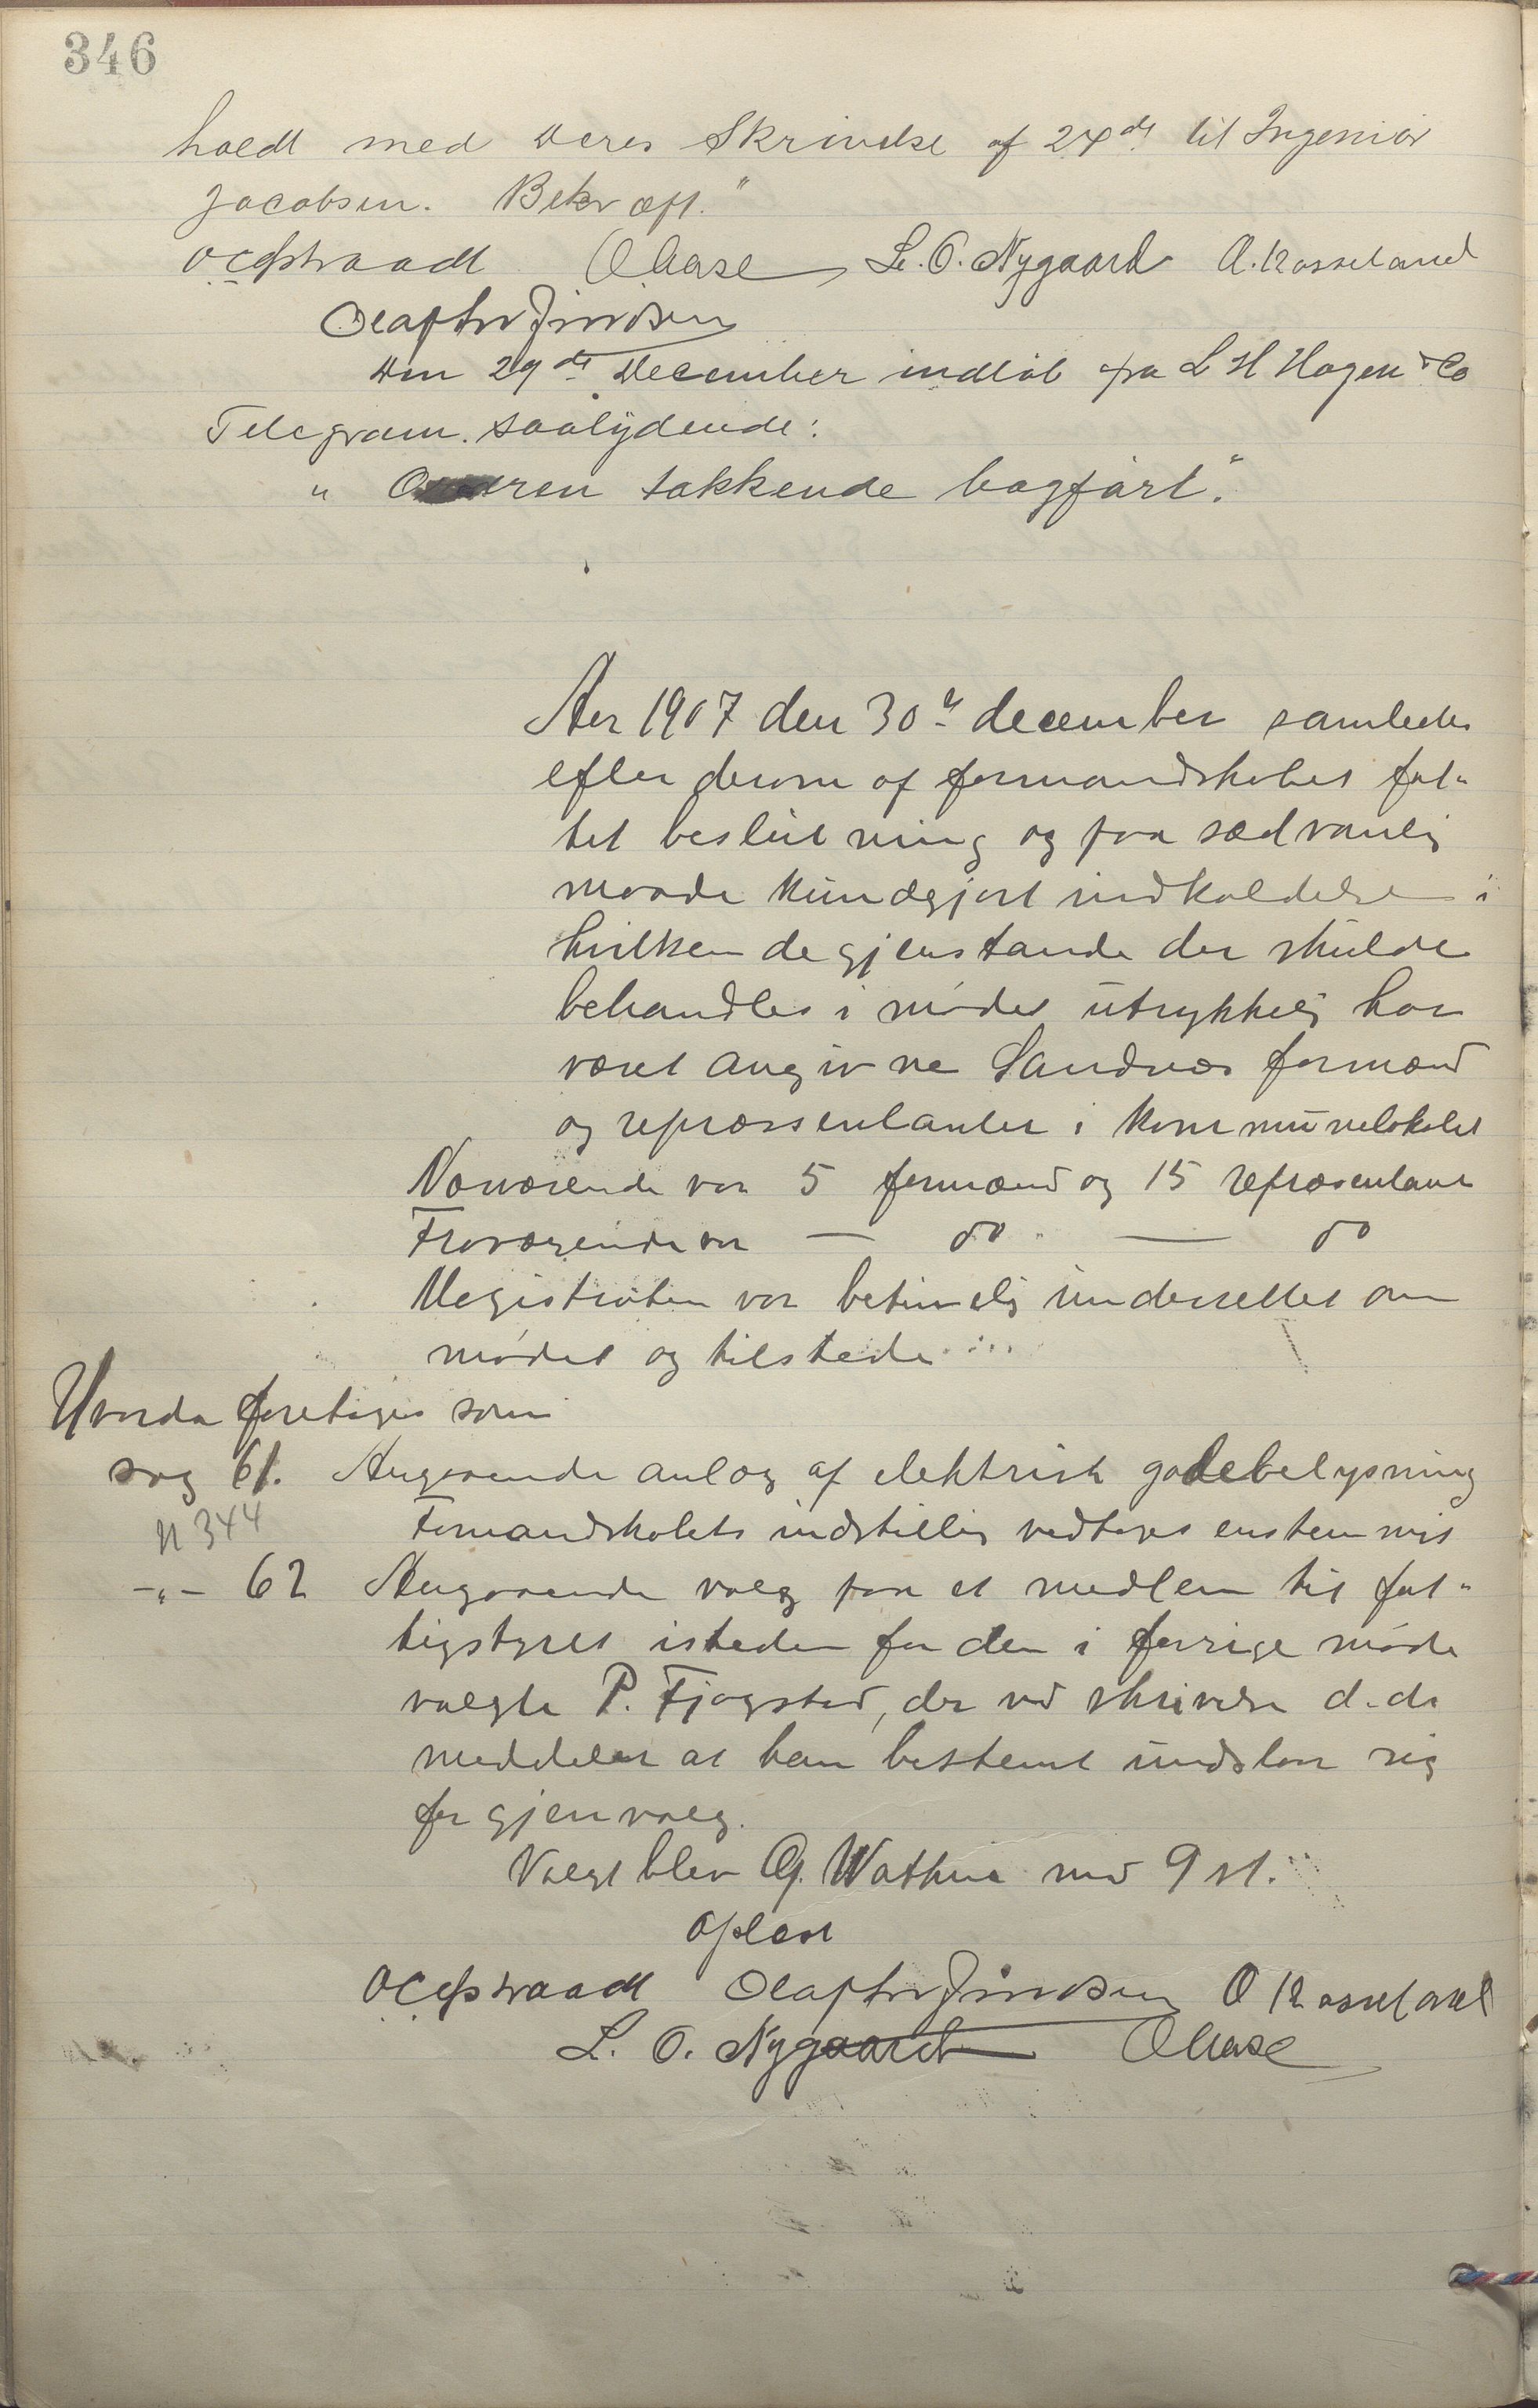 346
holdt med Deres Skrivelse af 24de til Ingeniør
Jacobsen. Bekræft."
O Aase L. O. Nygaard A. Rosseland
Den 29de December indløb fra L H Hagen & Co
Telegram. saalydende:
" Ordren takkende bogført".
Aar 1907 den 30te december samledes
efter derom af formandskabet fat-
tet beslutning og paa sædvanlig
maade kundgjort indkaldelse i
hvilken de gjenstande der skulde
behandles i mødet utrykkelig har
været angivne Sandnes formænd
og repræssentanter i kommunelokalet
Nærværende var 5 formænd og 15 repræsentant
Fraværende var — do. — do
Magistraten var betimelig underrettet om
mødet og tilstede
Hvorda foretages som
sag 61. Angaaende anlæg af elektrisk gadebelysning
N 344
Formandskabets indstilling vedtages enstemmig
-"- 62 Angaaende valg paa et medlem til fat-
tigstyret isteden for den i forrige møde
valgte P. Fjogstad, der ved skrivelse d.d.
meddeler at han bestemt undslaar sig
for gjenvalg.
Valgt blev G. Wathne med 9 st.
Oplæst
O Rosseland
L. O. Nygaard O Aase